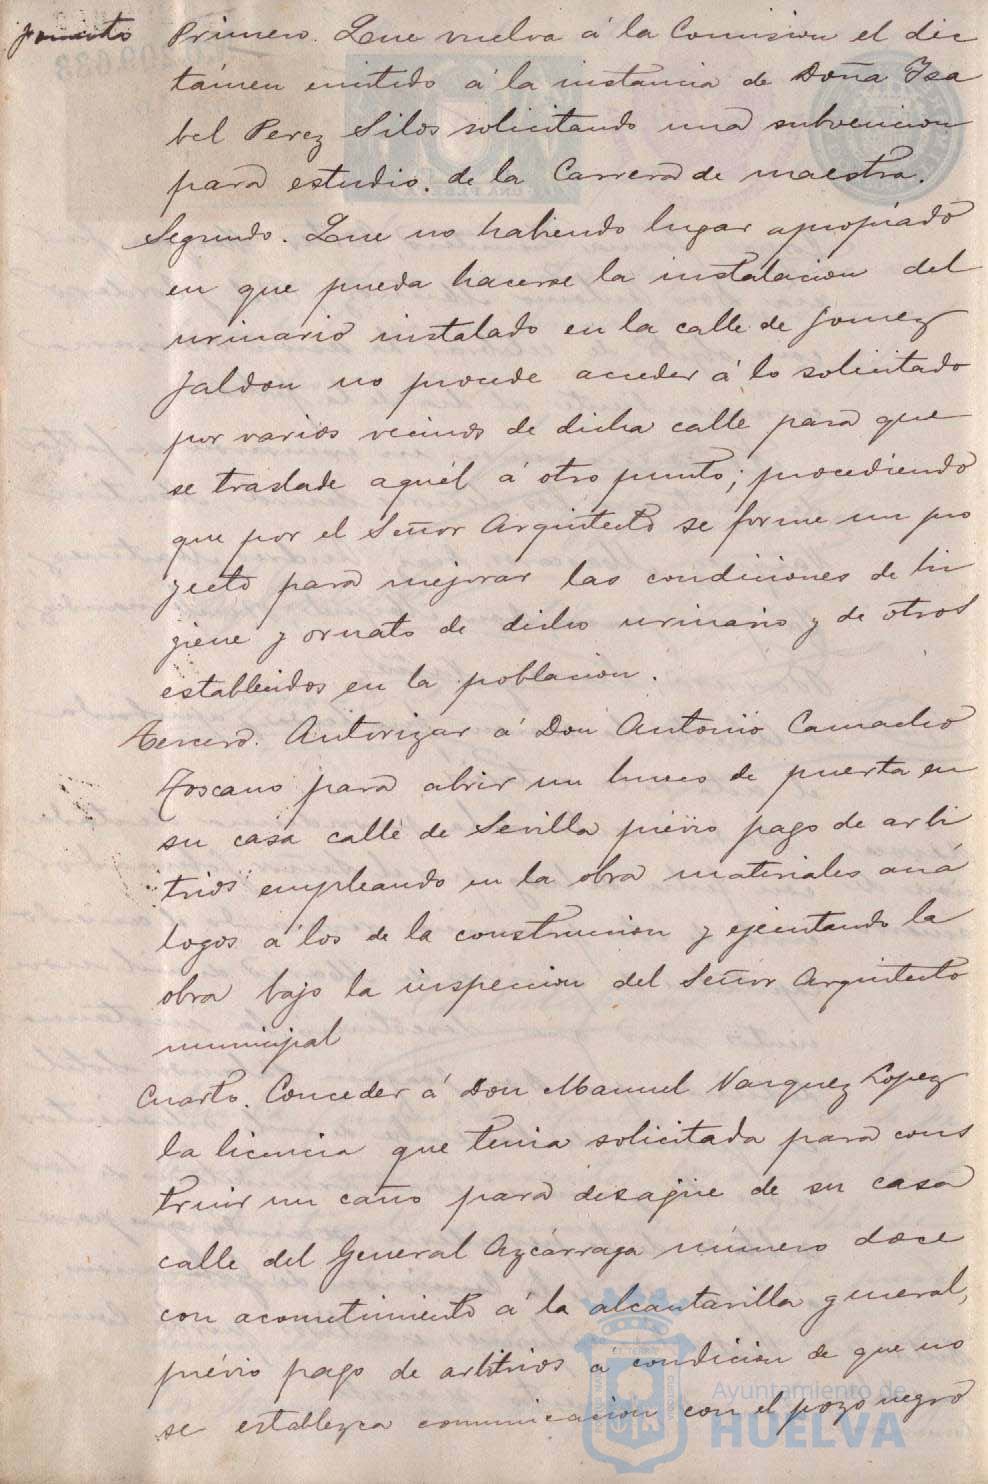 Primero. Que vuelva á la Comision el dic
támen emitido á la instancia de Doña Isa
bel Perez Silos solicitando una subvencion
para estudio. de la Carrera de maestra.
Segundo. Que no habiendo lugar apropiado
en que pueda hacerse la instalacion del
urinario instalado en la calle de Gomez
Jaldon no procede acceder á lo solicitado
por varios vecinos de dicha calle para que
se traslade aquél á otro punto; procediendo
que por el Señor Arquitecto se forme un pro
yecto para mejorar las condiciones de hi
giene y ornato de dicho urinario y de otros
establecidos en la poblacion.
Tercero. Autorizar á Don Antonio Camacho
Toscano para abrir un hueco de puerta en
su casa calle de Sevilla prévio pago de arbi
trios empleando en la obra materiales aná
logos á los de la construccion y ejecutando la
obra bajo la inspeccion del Señor Arquitecto
municipal
Cuarto. Conceder á Don Manuel Vazquez Lopez
la licencia que tenia solicitada para cons
truir un caño para desagüe de su casa
calle del General Azcárraga número doce
con acometimiento á la alcantarilla general,
prévio pago de arbitrios á condicion de que no
se establezca comunicacion con el pozo negro
Ayuntamiento de
HUELVA